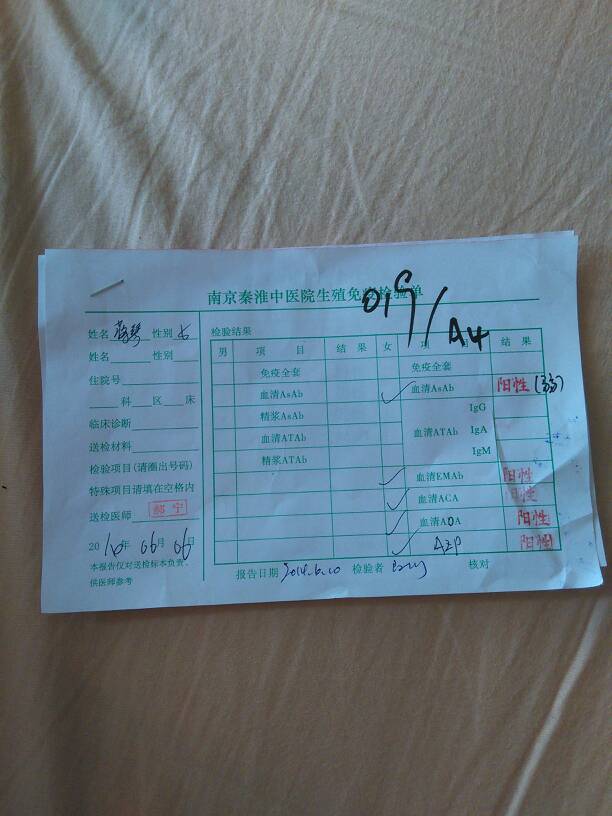 南京秦淮中医院生殖免疫检验单
019/A4
姓名 性别 女
姓名 性别
住院号
科 区 床
临床诊断
送检材料
检验项目(请圈出号码)
特殊项目请填在空格内
送检医师 宁
年06月06日
本报告仅对送检标本负责.
供医师参考
检验结果
男 项 目 结 果 女 项 目 结 果
免疫全套 免疫全套
血清AsAb ✓ 血清AsAb 阳性
精浆AsAb IgG
血清ATAb 血清ATAb IgA
精浆ATAb IgM
✓ 血清EMAb 阳性
✓ 血清ACA 阳性
✓ 血清AOA 阳性
✓ AZP 阳性
报告日期 2014.6.10 检验者 核对